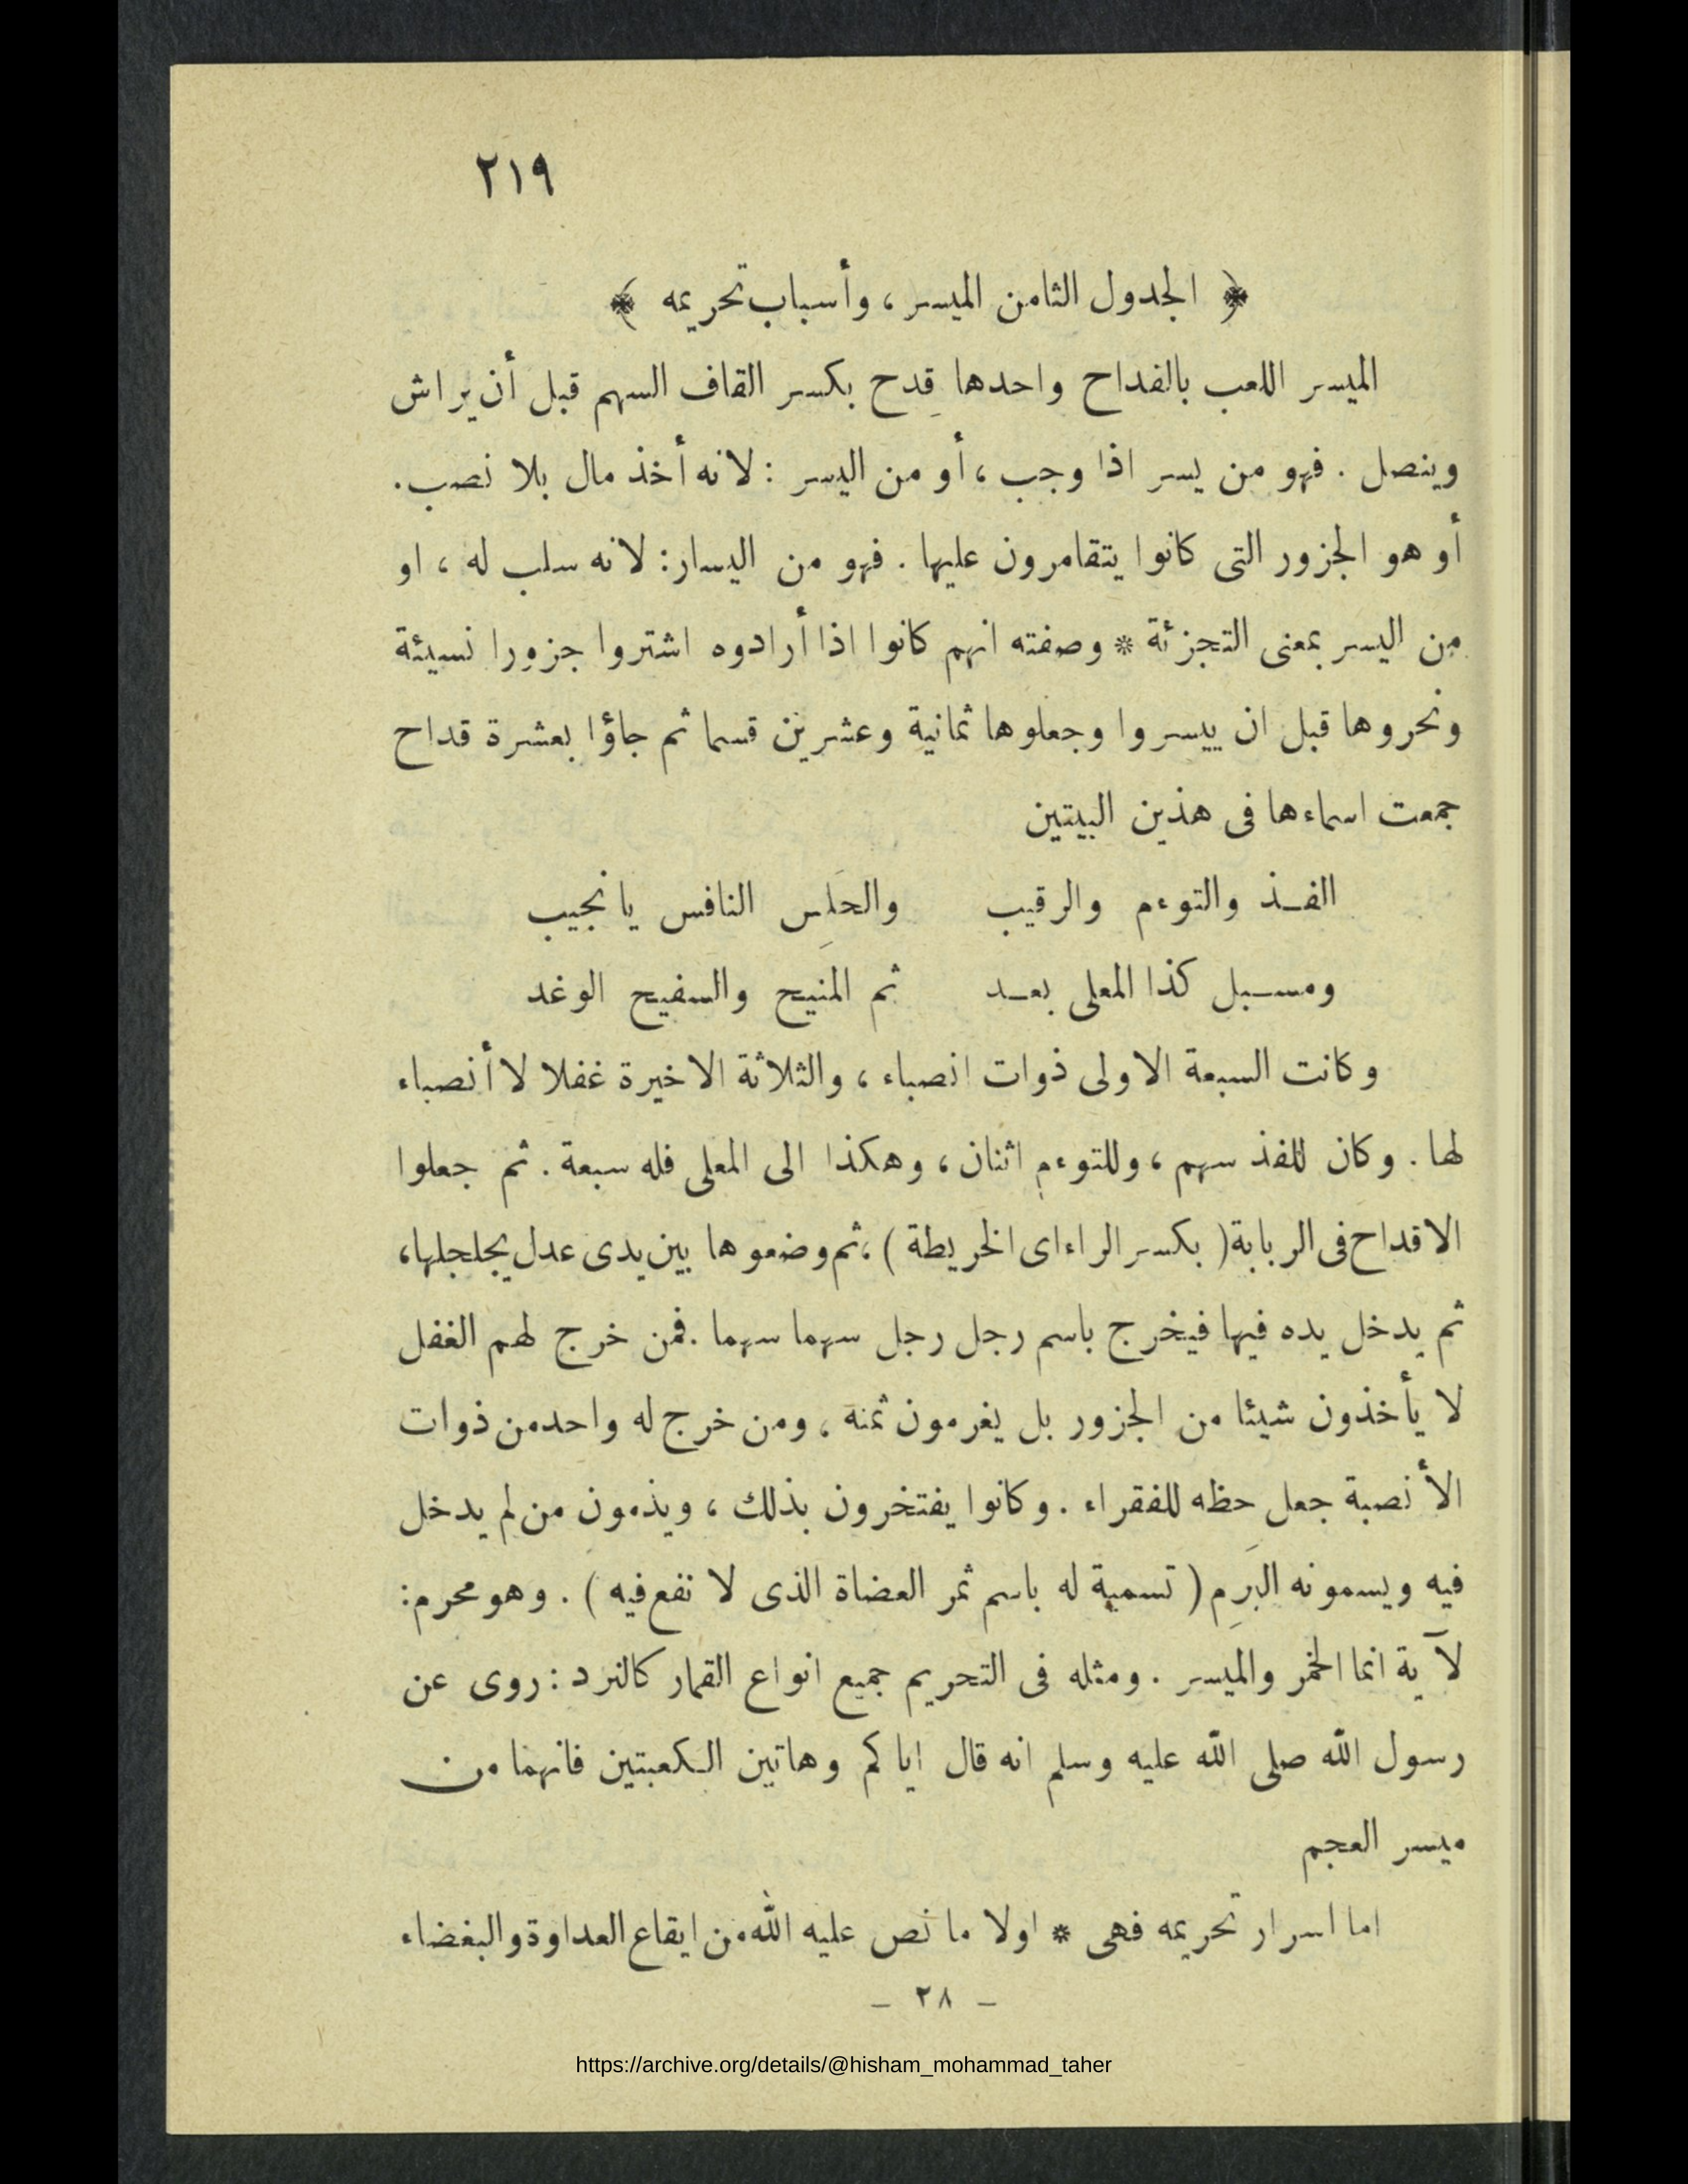 ٢١٩
﴿ الجدول الثامن الميسر ، وأسباب تحريمه ﴾
الميسر اللعب بالفداح واحدها قِدح بكسر القاف السهم قبل أن يراش
وينصل . فهو من يسر اذا وجب ، أو من اليسر : لانه أخذ مال بلا نصب.
أو هو الجزور التى كانوا يتقامرون عليها . فهو من اليسار: لانه سلب له ، او
من اليسر بمعنى التجزئة * وصفته انهم كانوا اذا أرادوه اشتروا جزورا نسيئة
ونحروها قبل ان ييسروا وجعلوها ثمانية وعشرين قسما ثم جاؤا بعشرة قداح
جمعت اسماءها فى هذين البيتين
الفـذ والتوءم والرقيب والحَلِس النافس يا نجيب
ومسـبل كذا المعلى بعـد ثم المنيح والسفيح الوغد
وكانت السبعة الاولى ذوات انصباء ، والثلاثة الاخيرة غفلا لا أنصباء
لها . وكان للفذ سهم ، وللتوءم اثنان ، وهكذا الى المعلى فله سبعة . ثم جعلوا
الاقداح فى الربابة ( بكسر الراء اى الخريطة ) ، ثم وضعوها بين يدى عدل يجلجلها،
ثم يدخل يده فيها فيخرج باسم رجل رجل سهما سهما . فمن خرج لهم الغفل
لا يأخذون شيئا من الجزور بل يغرمون ثمنه ، ومن خرج له واحد من ذوات
الأنصبة جعل حظه للفقراء . وكانوا يفتخرون بذلك ، ويذمون من لم يدخل
فيه ويسمونه البَرِم ( تسمية له باسم ثمر العضاة الذى لا نفع فيه ) . وهو محرم:
لآية انما الخمر والميسر . ومثله فى التحريم جميع انواع القمار كالنرد : روى عن
رسول الله صلى الله عليه وسلم انه قال اياكم وهاتين الـكعبتين فانهما من
ميسر العجم
اما اسرار تحريمه فهى * اولا ما نص عليه الله من ايقاع العداوة والبغضاء
– ٢٨ –
https://archive.org/details/@hisham_mohammad_taher